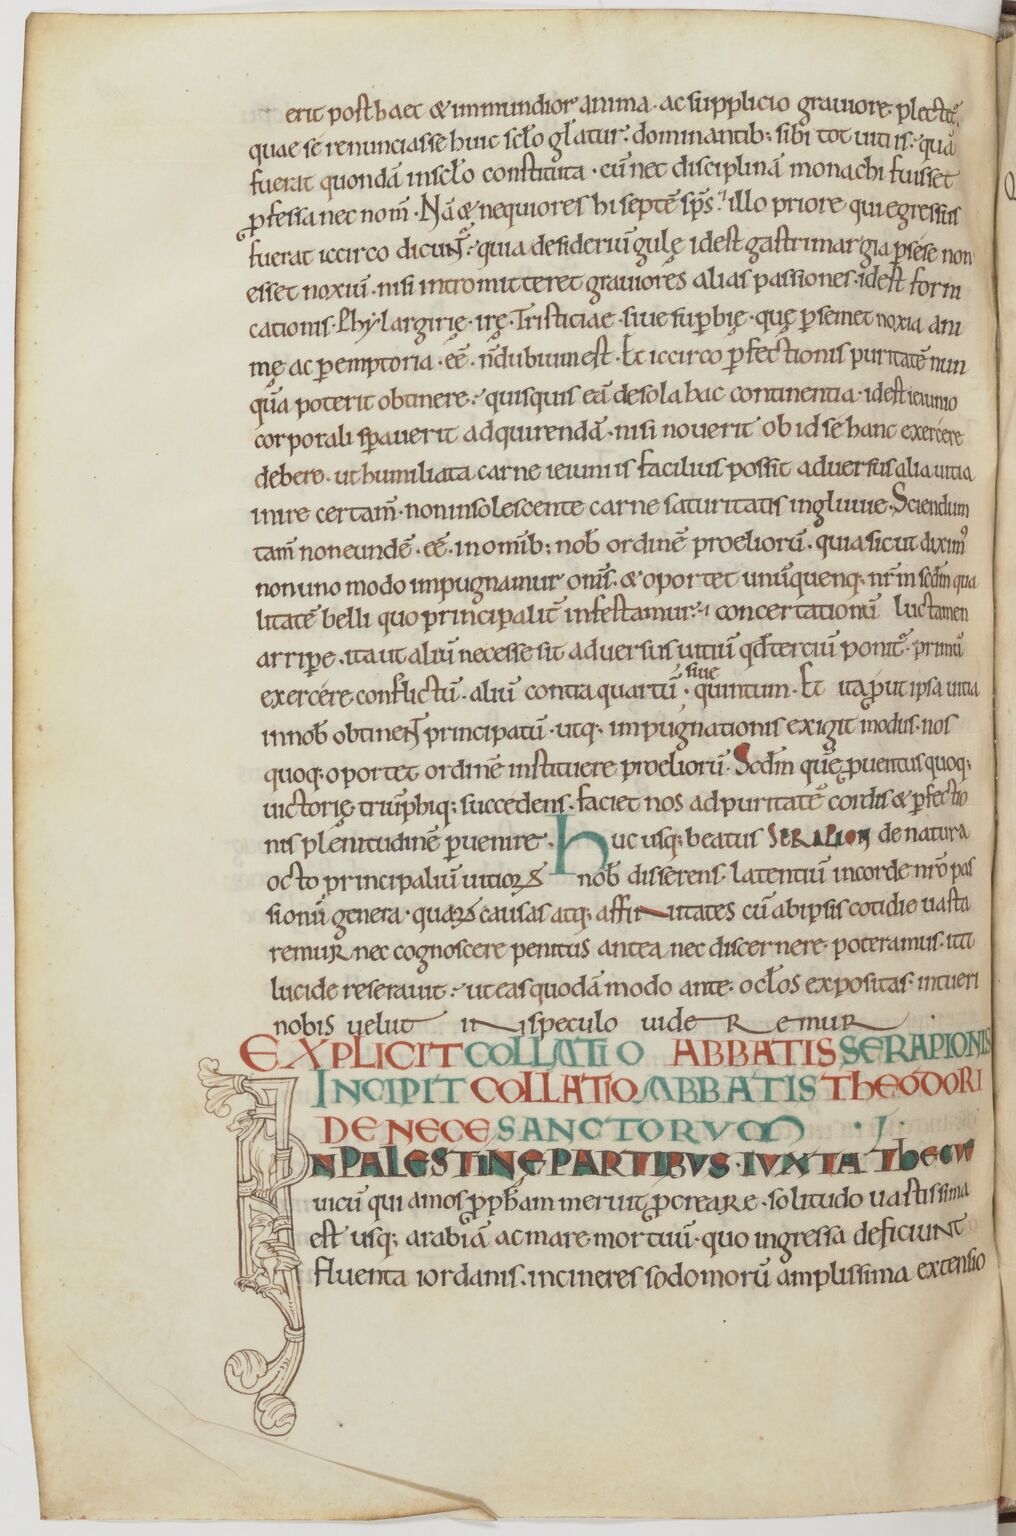 erit post haec & inmundior anima · ac supplicio graviore · plectet᷑,
quae se renunciasse huic sclo gl̄atur · dominantib; sibi tot uitiis · quā
fuerat quondā inscl̄o constituta · cū nec disciplinā monachi fuisset
ꝓfessa nec nom̄ · Nā & nequiores hi septē sp̄s · illo priore qui egressus
fuerat iccirco dicunt᷑ · quia desideriū gulę idest gastrimargia ꝑ sese non
esset noxiū · nisi intromitteret graviores alias passiones · idest forni
cationis · Phylargirię · irę · Tristiciae · siue supbię · quę ꝑ semet noxia ani
mę ac peremptoria · eē · n̄ dubium est · Et iccirco ꝑfectionis puritatē nun
quā poterit obtinere · quisquis eā de sola hac continentia · idest ieiunio
corporali spauerit adquirendā · nisi nouerit ob id se hanc exercere
debere · ut humiliata carne ieiuniis facilius possit aduersus alia uitia
inire certam̄ · non insolescente carne saturitatis ingluuie · Sciendum
tam̄ non eundē · eē · in omib; nob̄ ordinē proeliorū · quia sicut diximꝰ
non uno modo impugnamur om̄s · & oportet unūquenq; nr̄m scd̄m qua
litatē belli quo principalit̄ infestamur · concertationū luctamen
arripe · ita ut aliū necesse sit aduersus uitiū qd̄ tertiū ponit᷑ · primū
exercere conflictū · aliū contra quartū · siue quintum · Et ita put ipsa uitia
in nob̄ obtinent᷑ principatū · utq; impugnationis exigit modus · nos
quoq; oportet ordinē instituere proeliorū · Scd̄m quē puentus quoq;
uictorię triūphiq; succedens · faciet nos ad puritatē cordis & ꝑfectio
nis plenitudinē puenire · huc usq; beatus SERAPION de natura
octo principaliū uitioꝝ nob̄ disserens · latentiū in corde nr̄o pas
sionū genera · quaꝝ causas atq; affinitates cū ab ipsis cotidie uasta
remur nec cognoscere penitus antea nec discernere · poteramus · ita
lucide reserauit · ut eas quodā modo ante · ocl̄os expositas · intueri
nobis uelut in speculo uideremur ·
EXPLICIT COLLATIO ABBATIS SERAPIONIS
INCIPIT COLLATIO ABBATIS THEODORI
DE NECE SANCTORVM · I ·
IN PALESTINE PARTIBVS · IUXTA Thecue
uicū qui amos ꝓph̄am meruit ꝓcreare · solitudo uastissima
est usq; arabiā ac mare mortuū · quo ingressa deficiunt
fluenta iordanis · in cineres sodomorū amplissima extensio